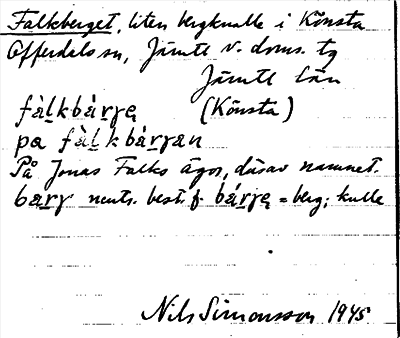 Falkberget, liten bergknalle i Könsta
Offerdals sn, Jämtl. v. doms. tg
Jämtl län
fàḷkbárγę (Könsta)
pa fàḷkbárγan
På Jonas Falks ägor, därav namnet.
barγ neutr. best. f. bárγę = berg; kulle
Nils Simonsson 1945